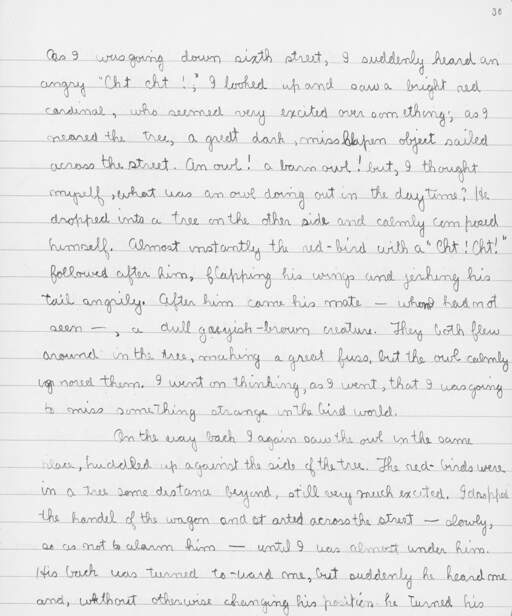 30
As I was going down sixth street, I suddenly heard an
angry "Cht cht!," I looked up and saw a bright red
cardinal, who seemed very excited over something; as I
neared the tree, a great dark, misshapen object sailed
across the street. An owl! a barn owl! but, I thought
myself, what was an owl doing out in the daytime? He
dropped into a tree on the other side and calmly composed
himself. Almost instantly the red-bird with a "Cht! Cht!"
followed after him, flapping his wings and jerking his
tail angrily. After him came his mate — whom had not
seen —, a dull grayish-brown creature. They both flew
around in the tree, making a great fuss, but the owl calmly
ignored them. I went on thinking, as I went, that I was going
to miss something strange in the bird world.
On the way back I again saw the owl in the same
place, huddled up against the side of the tree. The red-birds were
in a tree some distance beyond, still very much excited. I dropped
the handel of the wagon and started across the street — slowly,
so as not to alarm him — until I was almost under him.
His back was turned to-ward me, but suddenly he heard me
and, without otherwise changing his position he turned his